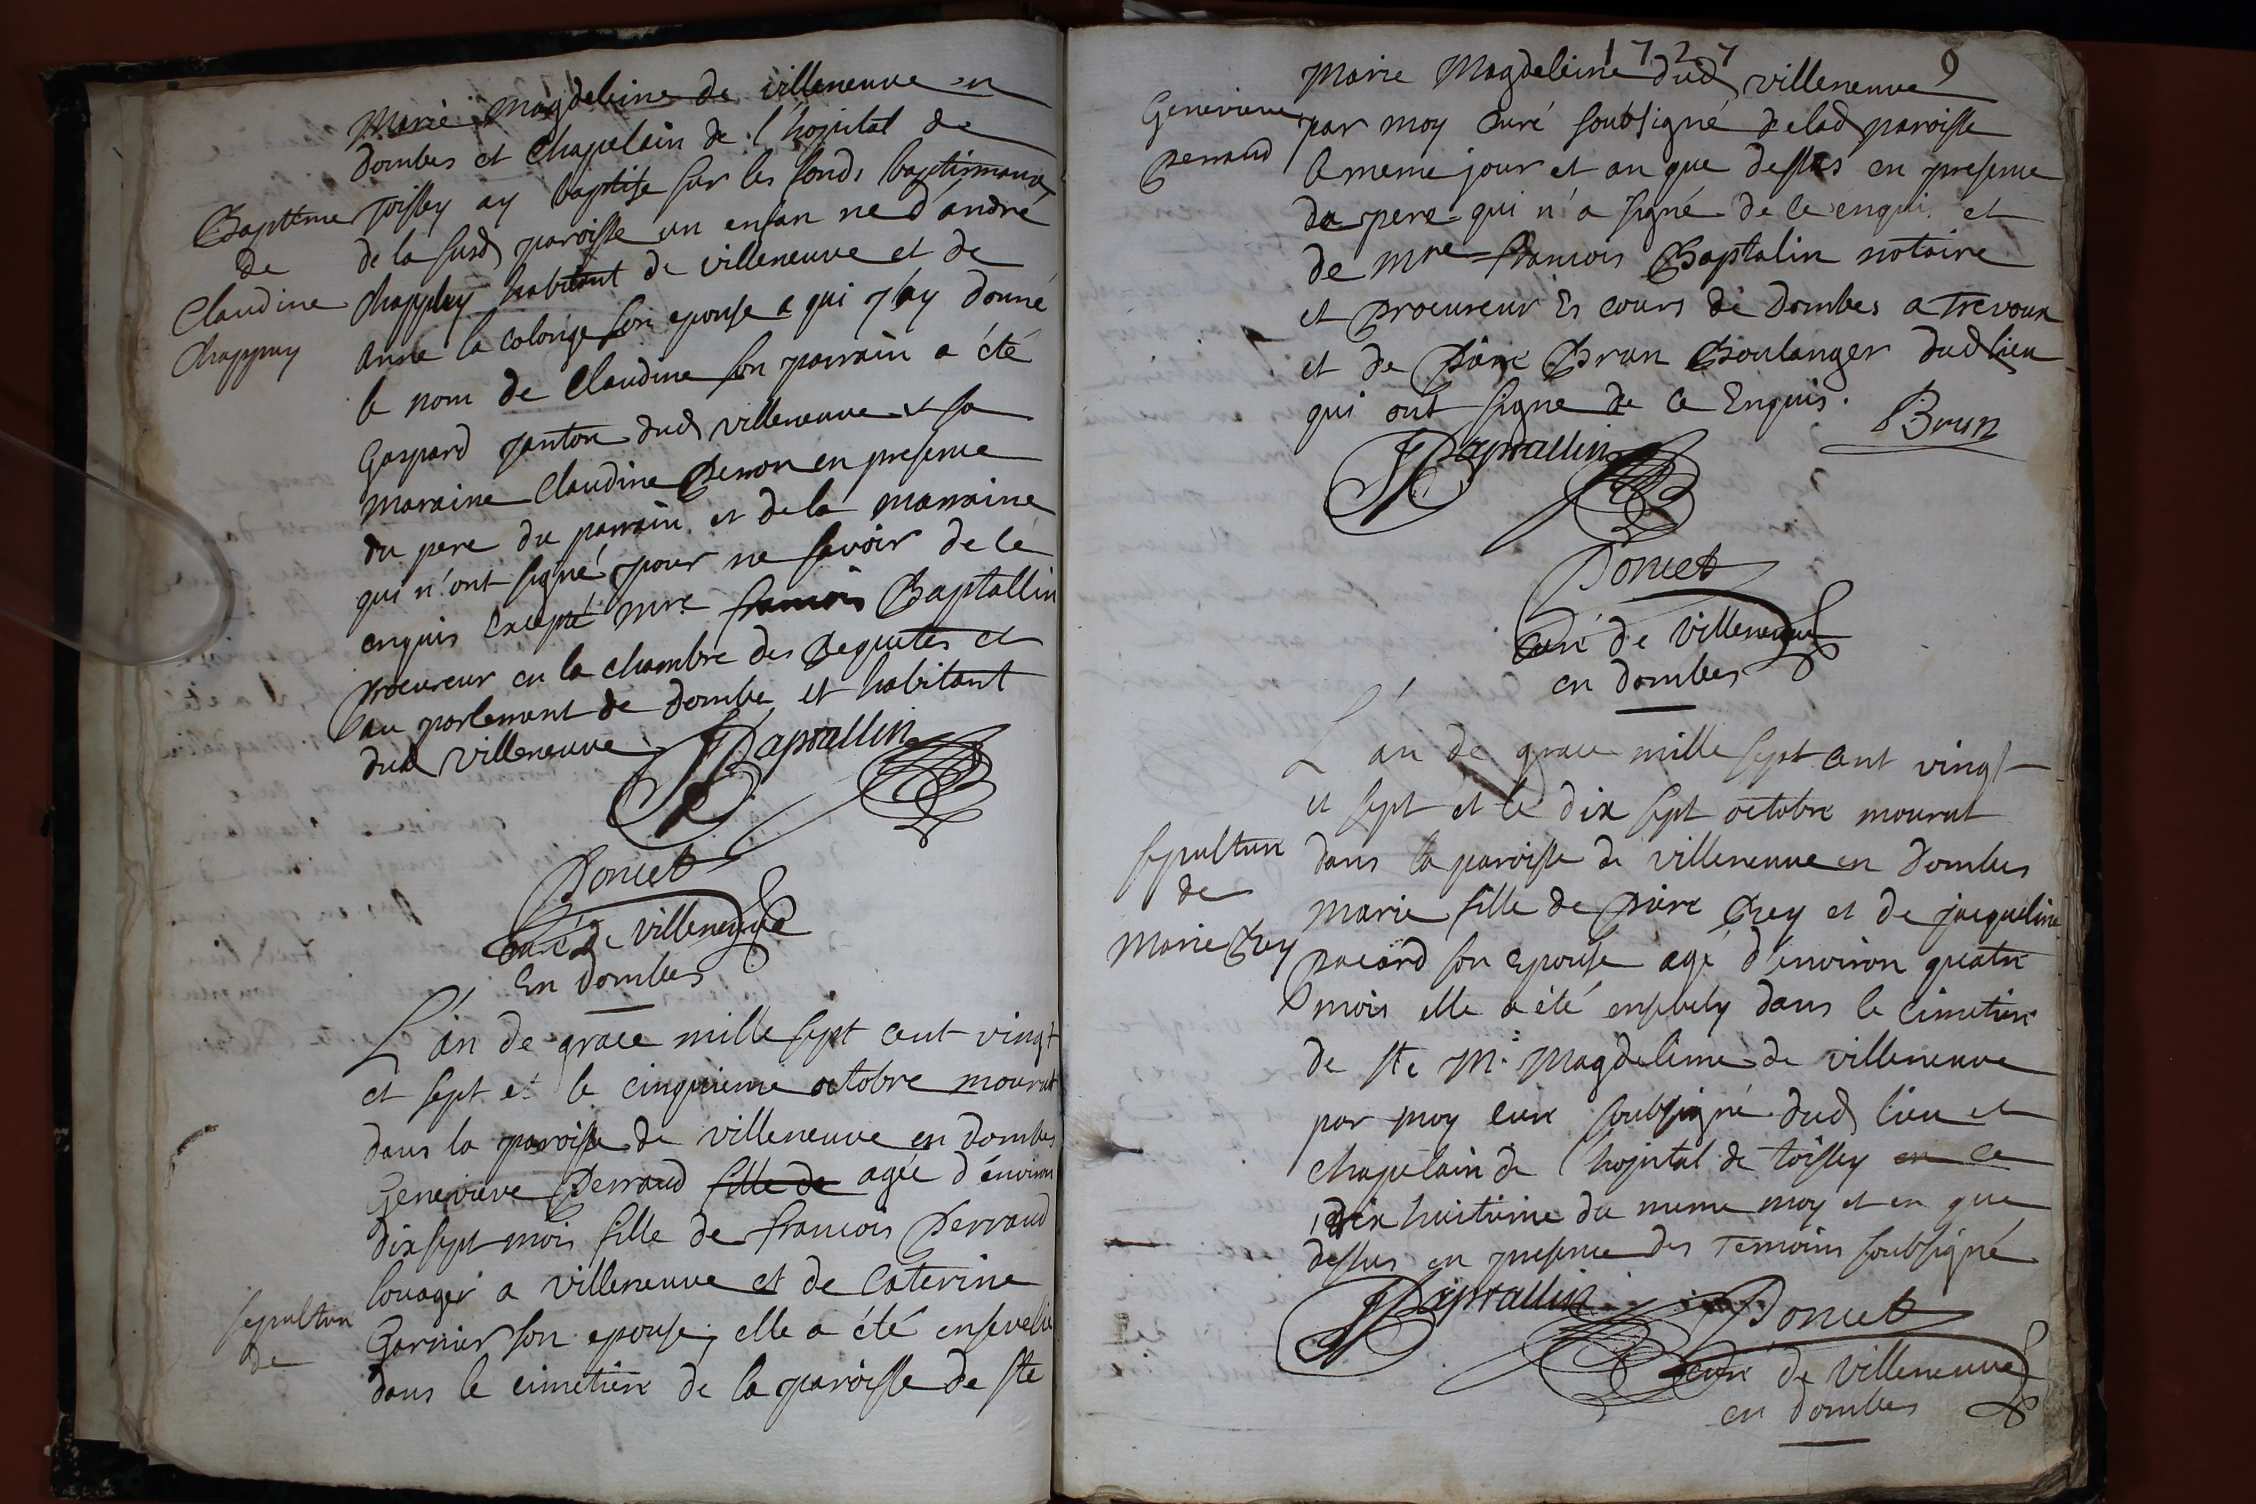 Marie Magdeleine de villeneuve en
dombes et Chapelain de l'hopital de
Baptéme
de
Claudine
Chappuy
Toissey ay baptise sur les fonds baptismaux
de la susd paroisse un enfan ne d'andré
Chappuy habitant de villeneuve et de
Anne la Colonge son epouse a qui j'ay donné
le nom de Claudine son parrain a été
Gaspard janton dud villeneuve et sa
maraine Claudine Perron en presence
du pere du parrain et de la marraine
qui n'ont signé pour ne savoir de ce
enquis Excepté mre francois Baptallin
procureur en la chambre des Requetes et
au parlement de Dombe et habitant
dud villeneuve
Baptallin
Poncet
curé de villeneuve
En dombes
L'an de grace mille sept cent vingt
et sept et le cinquieme octobre mourut
dans la paroisse de villeneuve en Dombes
Genevieve Perraud fille de agée d'environ
dix sept mois fille de francois Perraud
sepulture
de
louager a villeneuve et de Caterine
Garnier son epouse, elle a été ensevelie
dans le cimetiere de la paroisse de ste
1727
9
Genevieve
Perraud
Marie Magdeleine dud villeneuve
par moy Curé soubsigné de lad paroisse
le meme jour et an que dessus en presence
du pere qui n'a signé de ce enqui et
de mre francois Baptalin notaire
et procureur Es cours de Dombes a Trevoux
et de Piere Brun Boulanger dud lieu
qui ont signe de ce Enquis.
Brun
Baptallin
Poncet
Curé de Villeneuve
en dombes
L'an de grace mille sept cent vingt
et sept et le dix sept octobre mourut
sepulture
de
Marie Rey
dans la paroisse de villeneuve en Dombes
Marie fille de Piere Rey et de jacqueline
pacard son Epouse agé d'environ quatre
mois elle a été ensevely dans le cimetiere
de ste M. Magdeleine de villeneuve
par moy curé soubsigné dud lieu et
chapelain de l'hopital de toissey en ce
dix huitieme du meme moy et en que
dessus en presence des Temoins soubsigné
Baptallin
Poncet
curé de villeneuve
en dombes